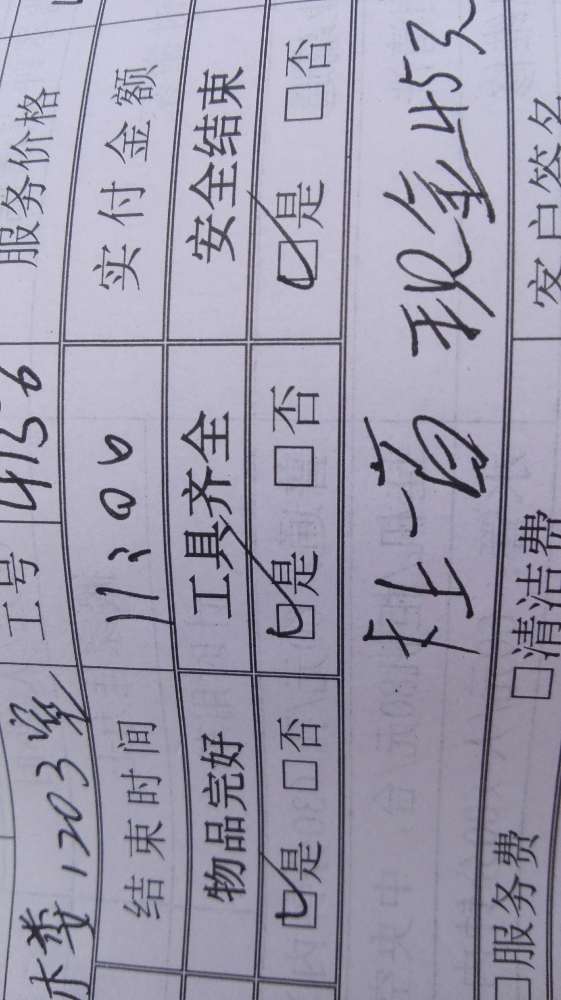 1203室 工号 4156 服务价格
结束时间 11:00 实付金额
物品完好 工具齐全 安全结束
☑是 □否 ☑是 □否 ☑是 □否
现金45元
□服务费 □清洁费 客户签名